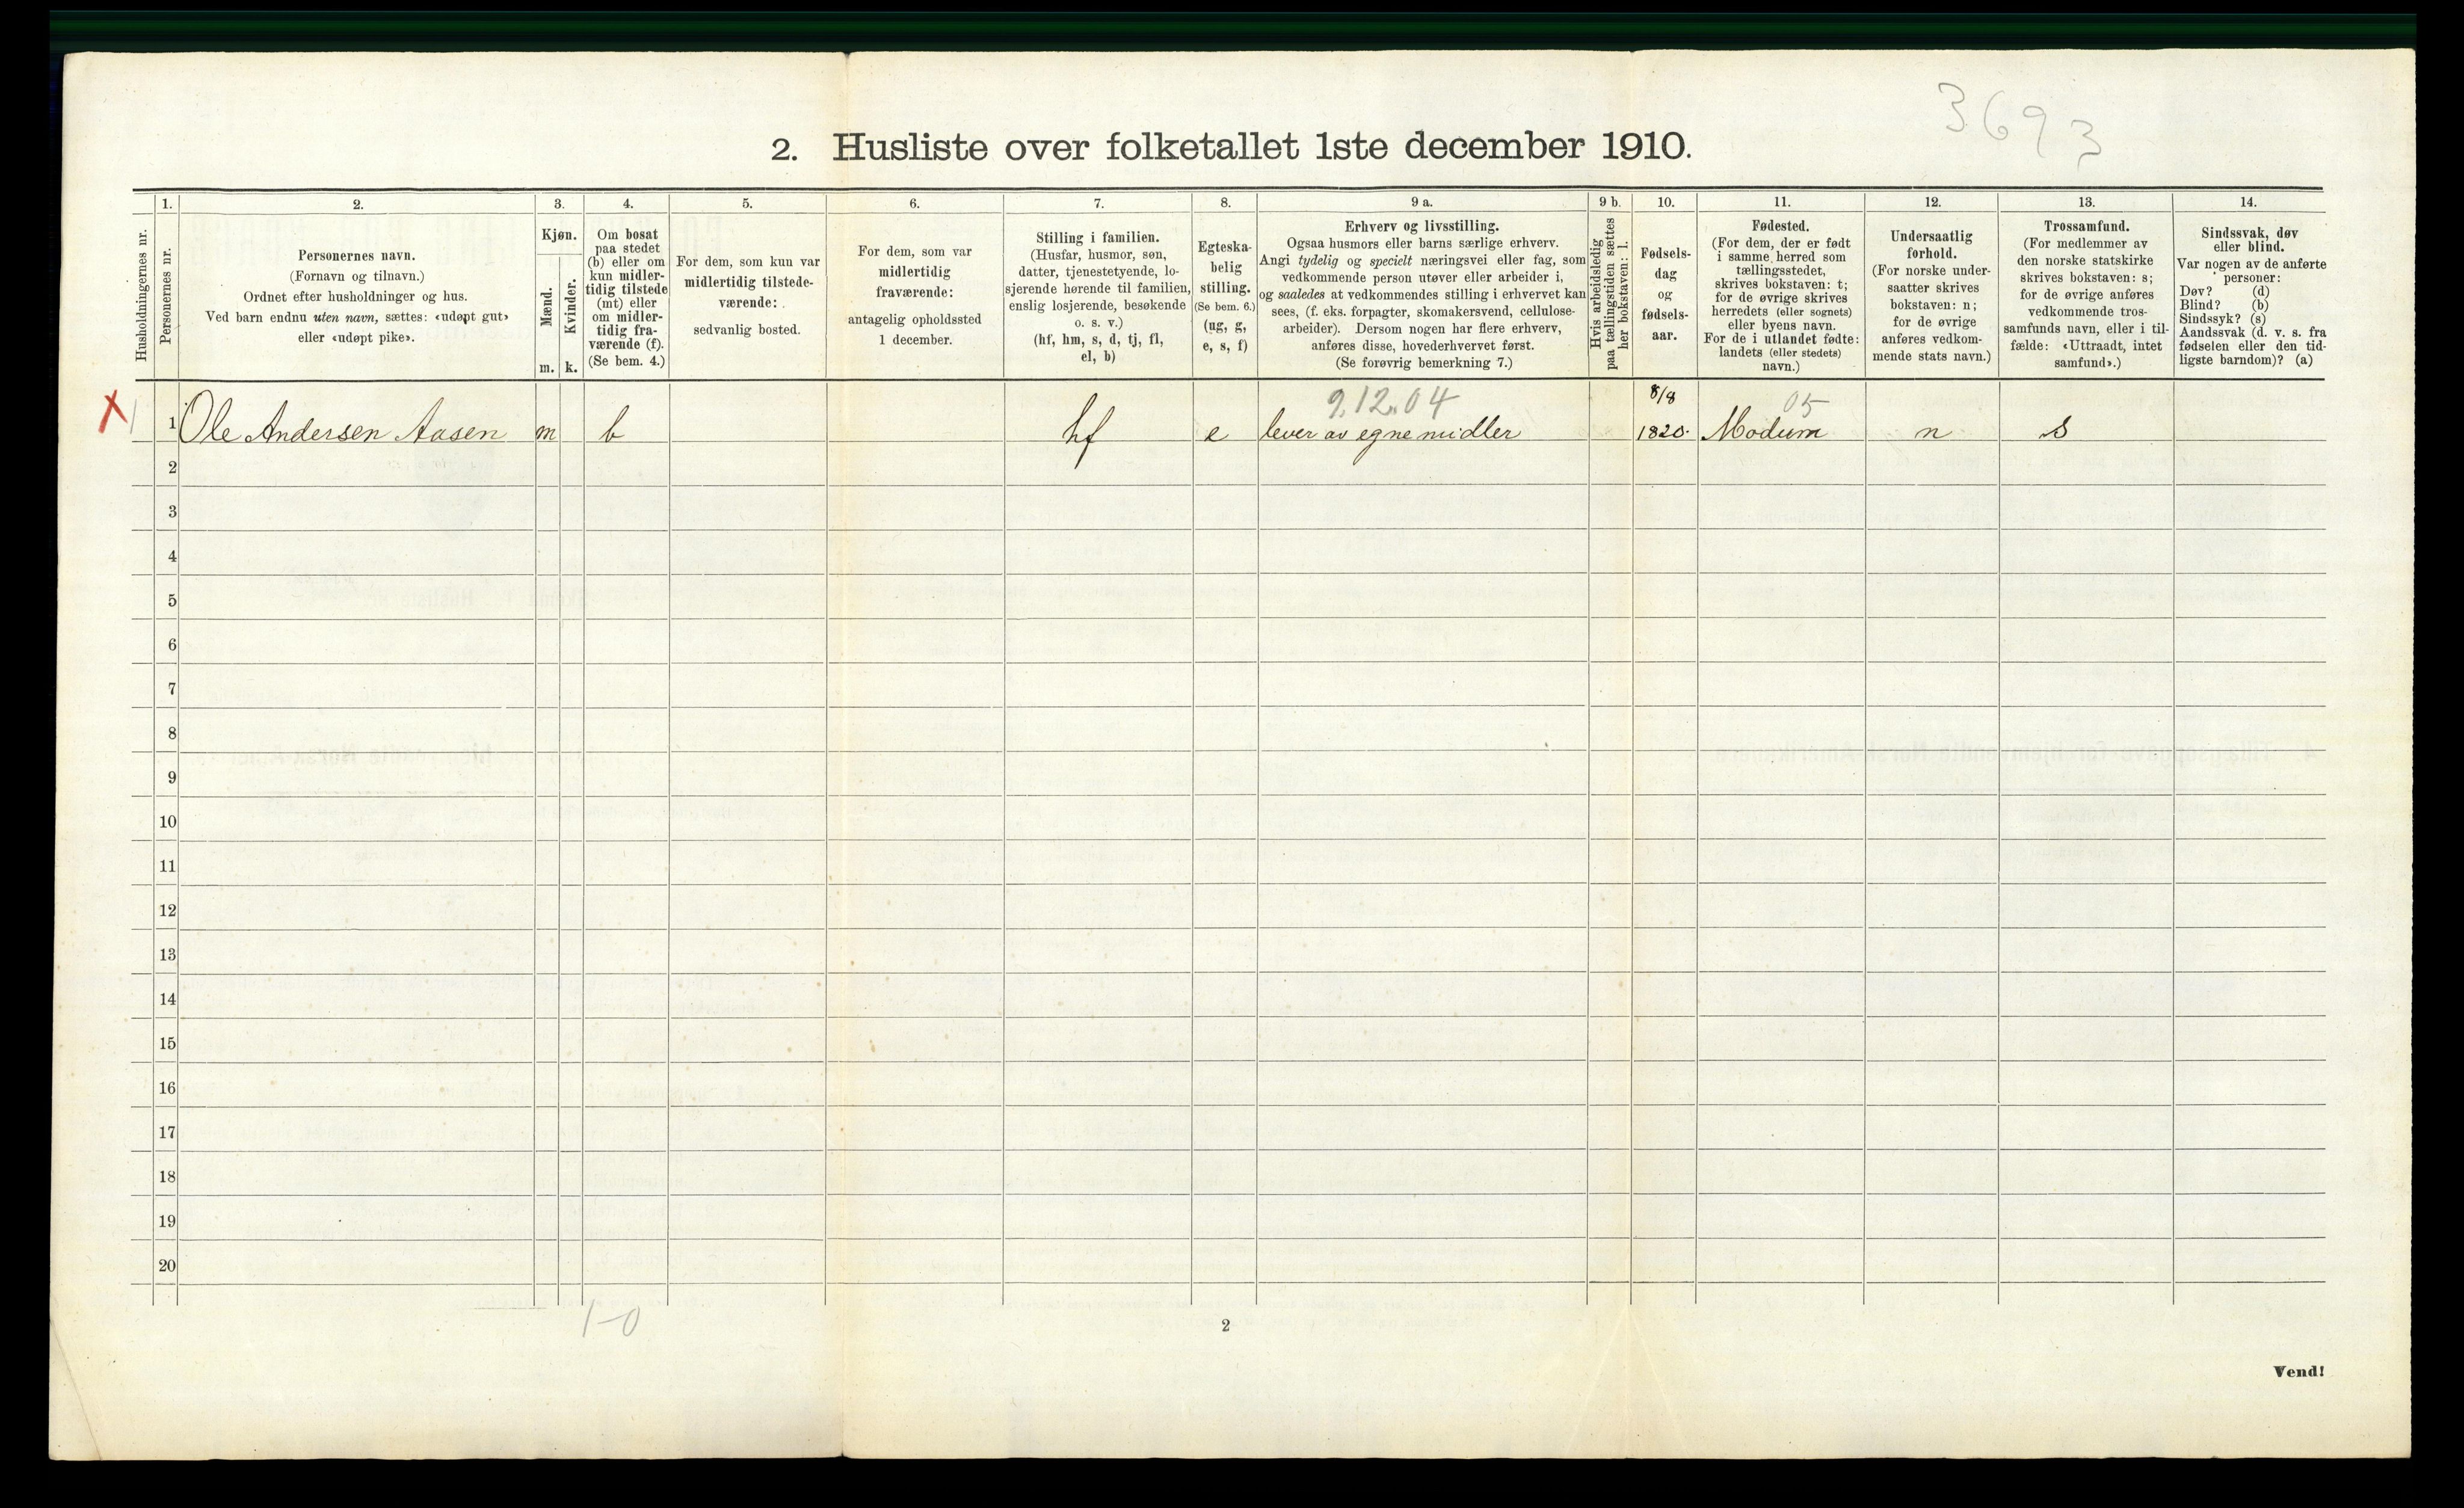 3693
2. Husliste over folketallet 1ste december 1910.
Husholdningernes nr.
1.
Personernes nr.
2.
Personernes navn.
(Fornavn og tilnavn.)
Ordnet efter husholdninger og hus.
Ved barn endnu uten navn, sættes: «udøpt gut»
eller «udøpt pike».
3.
Kjøn.
Mænd.
Kvinder.
m. k.
4.
Om bosat
paa stedet
(b) eller om
kun midler-
tidig tilstede
(mt) eller
om midler-
tidig fra-
værende (f).
(Se bem. 4.)
5.
For dem, som kun var
midlertidig tilstede-
værende:
sedvanlig bosted.
6.
For dem, som var
midlertidig
fraværende:
antagelig opholdssted
1 december.
7.
Stilling i familien.
(Husfar, husmor, søn,
datter, tjenestetyende, lo-
sjerende hørende til familien,
enslig losjerende, besøkende
o. s. v.)
(hf, hm, s, d, tj, fl,
el, b)
8.
Egteska-
belig
stilling.
(Se bem. 6.)
(ug, g,
e, s, f)
9 a.
Erhverv og livsstilling.
Ogsaa husmors eller barns særlige erhverv.
Angi tydelig og specielt næringsvei eller fag, som
vedkommende person utøver eller arbeider i,
og saaledes at vedkommendes stilling i erhvervet kan
sees, (f. eks. forpagter, skomakersvend, cellulose-
arbeider). Dersom nogen har flere erhverv,
anføres disse, hovederhvervet først.
(Se forøvrig bemerkning 7.)
9 b.
Hvis arbeidsledig
paa tællingstiden sættes
her bokstaven: l.
10.
Fødsels-
dag
og
fødsels-
aar.
11.
Fødested.
(For dem, der er født
i samme herred som
tællingsstedet,
skrives bokstaven: t;
for de øvrige skrives
herredets (eller sognets)
eller byens navn.
For de i utlandet fødte:
landets (eller stedets)
navn.)
12.
Undersaatlig
forhold.
(For norske under-
saatter skrives
bokstaven: n;
for de øvrige
anføres vedkom-
mende stats navn.)
13.
Trossamfund.
(For medlemmer av
den norske statskirke
skrives bokstaven: s;
for de øvrige anføres
vedkommende tros-
samfunds navn, eller i til-
fælde: «Uttraadt, intet
samfund».)
14.
Sindssvak, døv
eller blind.
Var nogen av de anførte
personer:
Døv? (d)
Blind? (b)
Sindssyk? (s)
Aandssvak (d. v. s. fra
fødselen eller den tid-
ligste barndom)? (a)
9.12.04 8/8 05
X 1 1 Ole Andersen Aasen m b hf e lever av egne midler 1820. Modum n s
2
3
4
5
6
7
8
9
10
11
12
13
14
15
16
17
18
19
20
1-0
2
Vend!